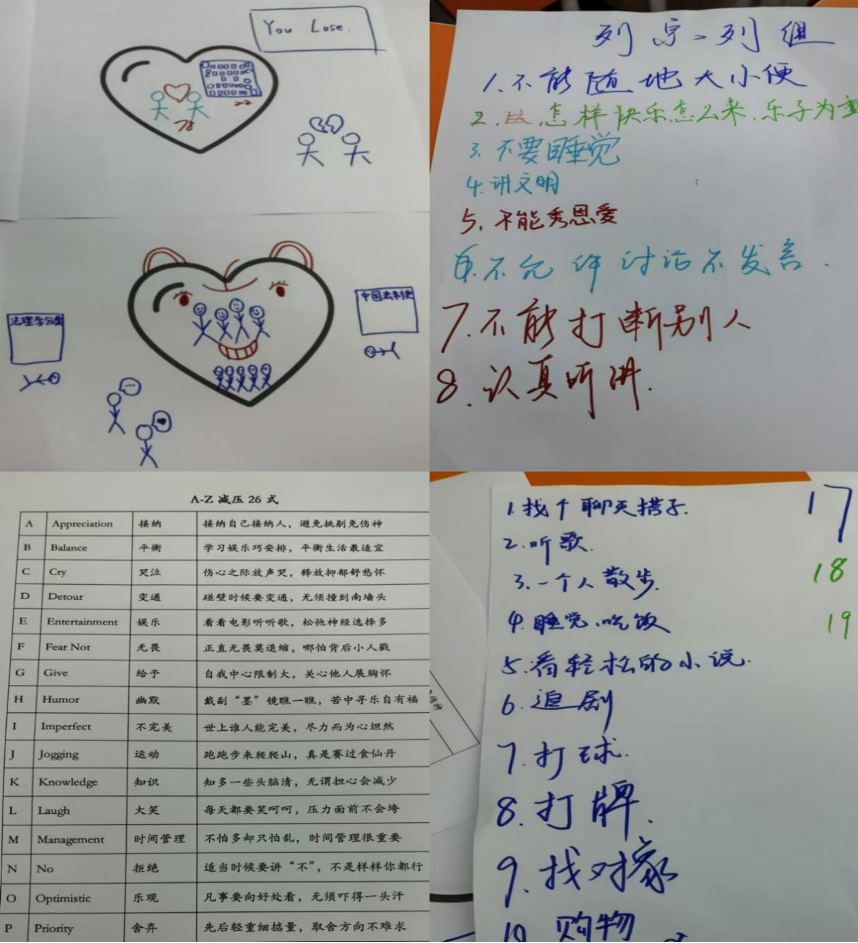 You Lose.
78
22
法理学分离
中国法制史
1.不能随地大小便
2. 怎样快乐怎么来.乐子为
3.不要睡觉
4.讲文明
5.不能秀恩爱
6.不允许讨论不发言.
7.不能打断别人
8.认真听讲.
A-Z 减压 26 式
A Appreciation 接纳 接纳自己接纳人，避免挑剔免伤神
B Balance 平衡 学习娱乐巧安排，平衡生活最适宜
C Cry 哭泣 伤心之际放声哭，释放抑郁舒愁怀
D Detour 变通 碰壁时候要变通，无须撞到南墙头
E Entertainment 娱乐 看看电影听听歌，松弛神经选择多
F Fear Not 无畏 正直无畏莫退缩，哪怕背后小人戳
G Give 给予 自我中心限制大，关心他人展胸怀
H Humor 幽默 戴副“墨”镜瞧一瞧，苦中寻乐自有福
I Imperfect 不完美 世上谁人能完美，尽力而为心坦然
J Jogging 运动 跑跑步来爬爬山，真是赛过食仙丹
K Knowledge 知识 知多一些头脑清，无谓担心会减少
L Laugh 大笑 每天都要笑呵呵，压力面前不会垮
M Management 时间管理 不怕多却只怕乱，时间管理很重要
N No 拒绝 适当时候要讲“不”，不是样样你都行
O Optimistic 乐观 凡事要向好处看，无须吓得一头汗
P Priority 舍弃 先后轻重细掂量，取舍方向不难求
1.找个聊天搭子. 17
2.听歌.
3.一个人散步. 18
4.睡觉、吃饭 19
5.看轻松的小说.
6.追剧
7.打球.
8.打牌.
9.找对象
10 购物